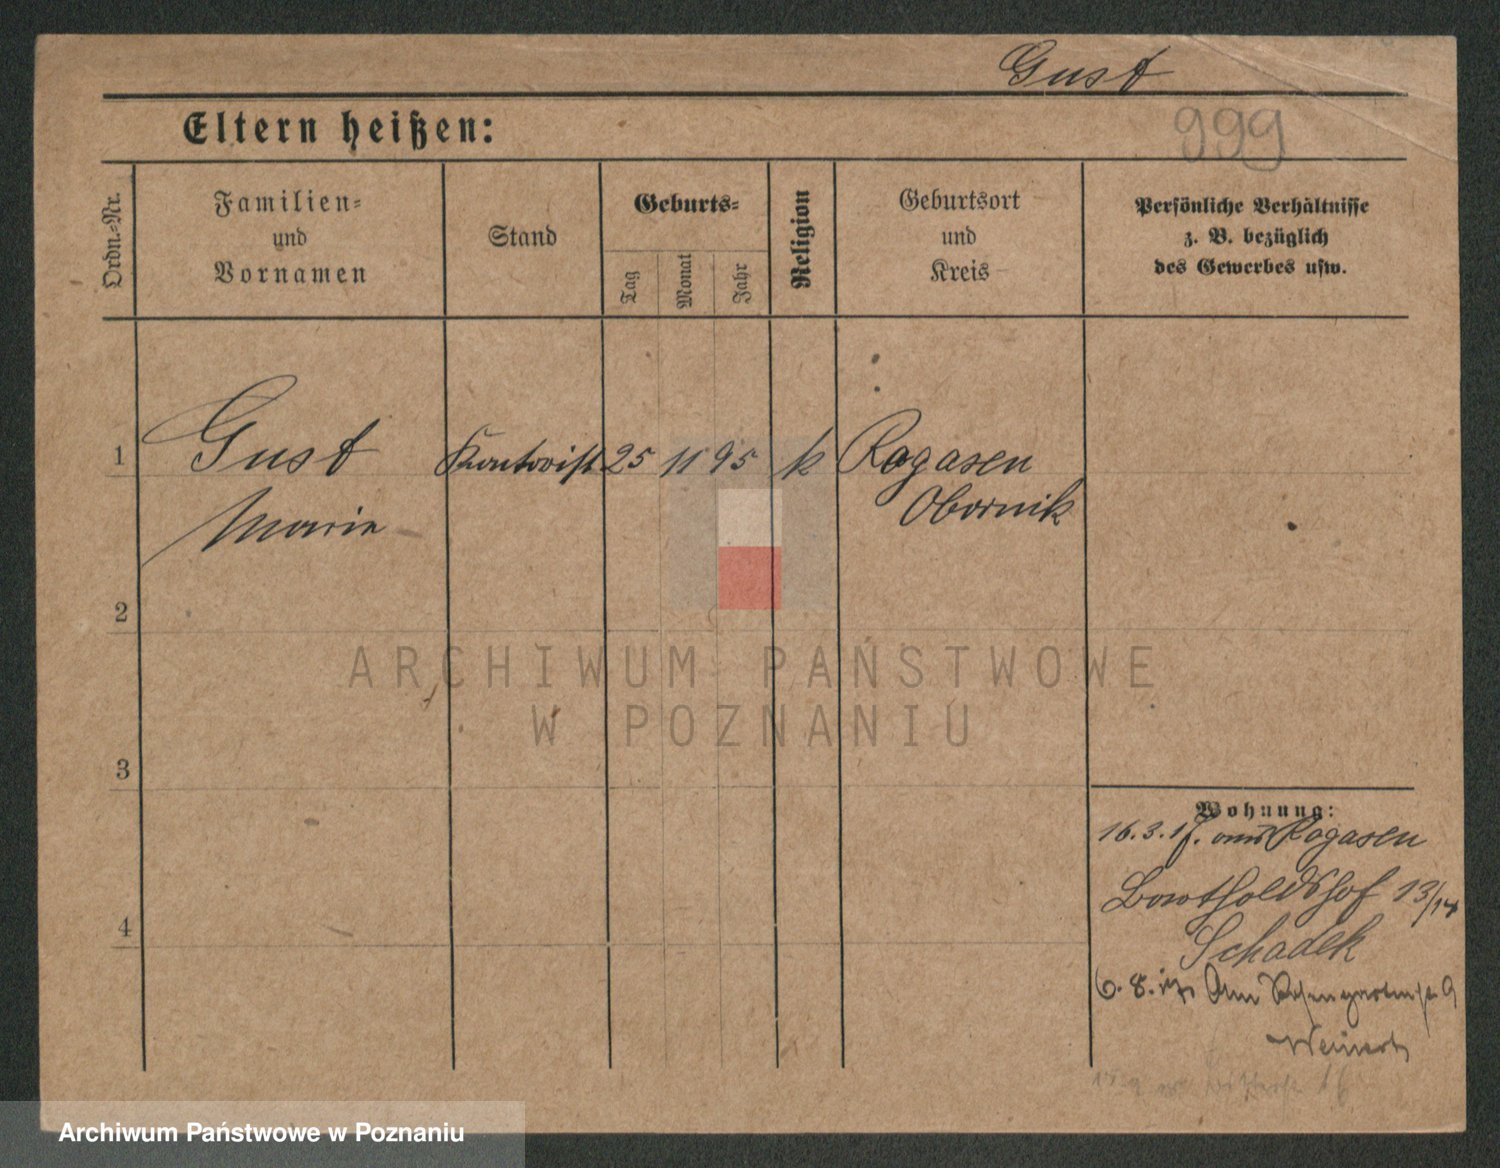 Gust
Eltern heißen:
999
Ordn.-Nr.
Familien-
und
Vornamen
Stand
Geburts-
Tag
Monat
Jahr
Religion
Geburtsort
und
Kreis
Persönliche Verhältnisse
z. B. bezüglich
des Gewerbes usw.
1
Gust
Marie
Kontorist
25
11
95
k
Rogasen
Obornik
2
3
4
Wohnung:
16.3.17. aus Rogasen
13/14
Schadek
6. 8.
9
Weinert
ARCHIWUM PAŃSTWOWE
W POZNANIU
Archiwum Państwowe w Poznaniu